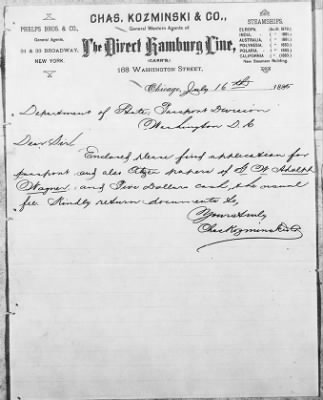 CHAS. KOZMINSKI & CO.,
General Western Agents of
The Direct Hamburg Line,
(CARR'S)
168 WASHINGTON STREET,
PHELPS BROS. & CO.
General Agents,
31 & 33 BROADWAY,
NEW YORK.
STEAMSHIPS.
EUROPA,
INDIA
AUSTRALIA
POLYNESIA
POLARIA
CALIFORNIA
New Steamers Building.
Chicago, July 16th 1885
Department of State, Passport Division
Washington D.C.
Dear Sirs
Enclosed please find application for
passport and also Citzen papers of G W Adolph
Wagner and Two Dollars cash, the usual
fee. Kindly return documents to,
Yours truly
Chas Kozminski & Co